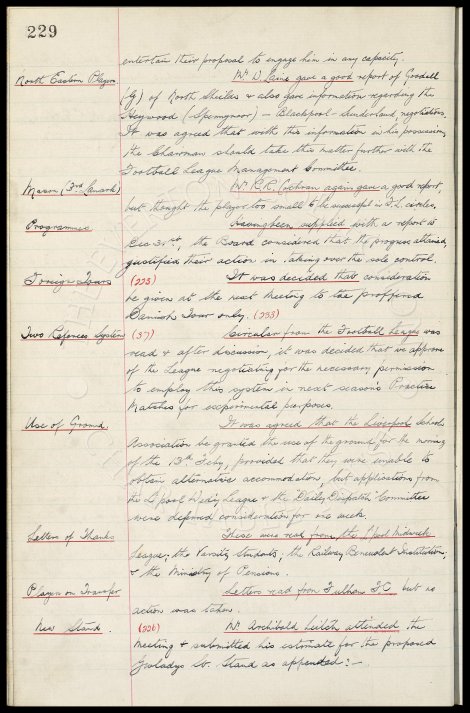 229
entertain their proposal to engage him in any capacity.
North Eastern Players Mr D. Laine gave a good report of Goodall
(G) of North Shields & also gave information regarding the
Heywood (Spennymoor) – Blackpool – Sunderland negotiations.
It was agreed that with this information in his possession,
the Chairman should take this matter further with the
Football League Management Committee.
Mason (3rd Lanark) Mr R.R. Cochran again gave a good report,
but thought the player too small to be successful in F.L. circles.
Programmes Having been supplied with a report to
Dec 31st, the Board considered that the progress attained,
justified their action in taking over the sole control.
Foreign Tours (225) It was decided that consideration
be given at the next Meeting to the proffered
Danish Tour only. (233)
Two Referees System (37) Circular from the Football League was
read & after discussion, it was decided that we approve
of the League negotiating for the necessary permission
to employ this system in next season's Practice
Matches for experimental purposes.
Use of Ground. It was agreed that the Liverpool Schools
Association be granted the use of the ground for the morning
of the 13th Feby, provided that they were unable to
obtain alternative accommodation, but applications from
the L'pool Weds League & the "Daily Dispatch" Committee
were deferred consideration for one week.
Letters of Thanks These were read from the L'pool Midweek
League; the Varsity Students; the Railway Benevolent Institution;
& the Ministry of Pensions.
Players on Transfer Letters read from Fulham F.C. but no
action was taken.
New Stand. (226) Mr Archibald Leitch attended the
Meeting & submitted his estimate for the proposed
Gwladys St. Stand as appended:–